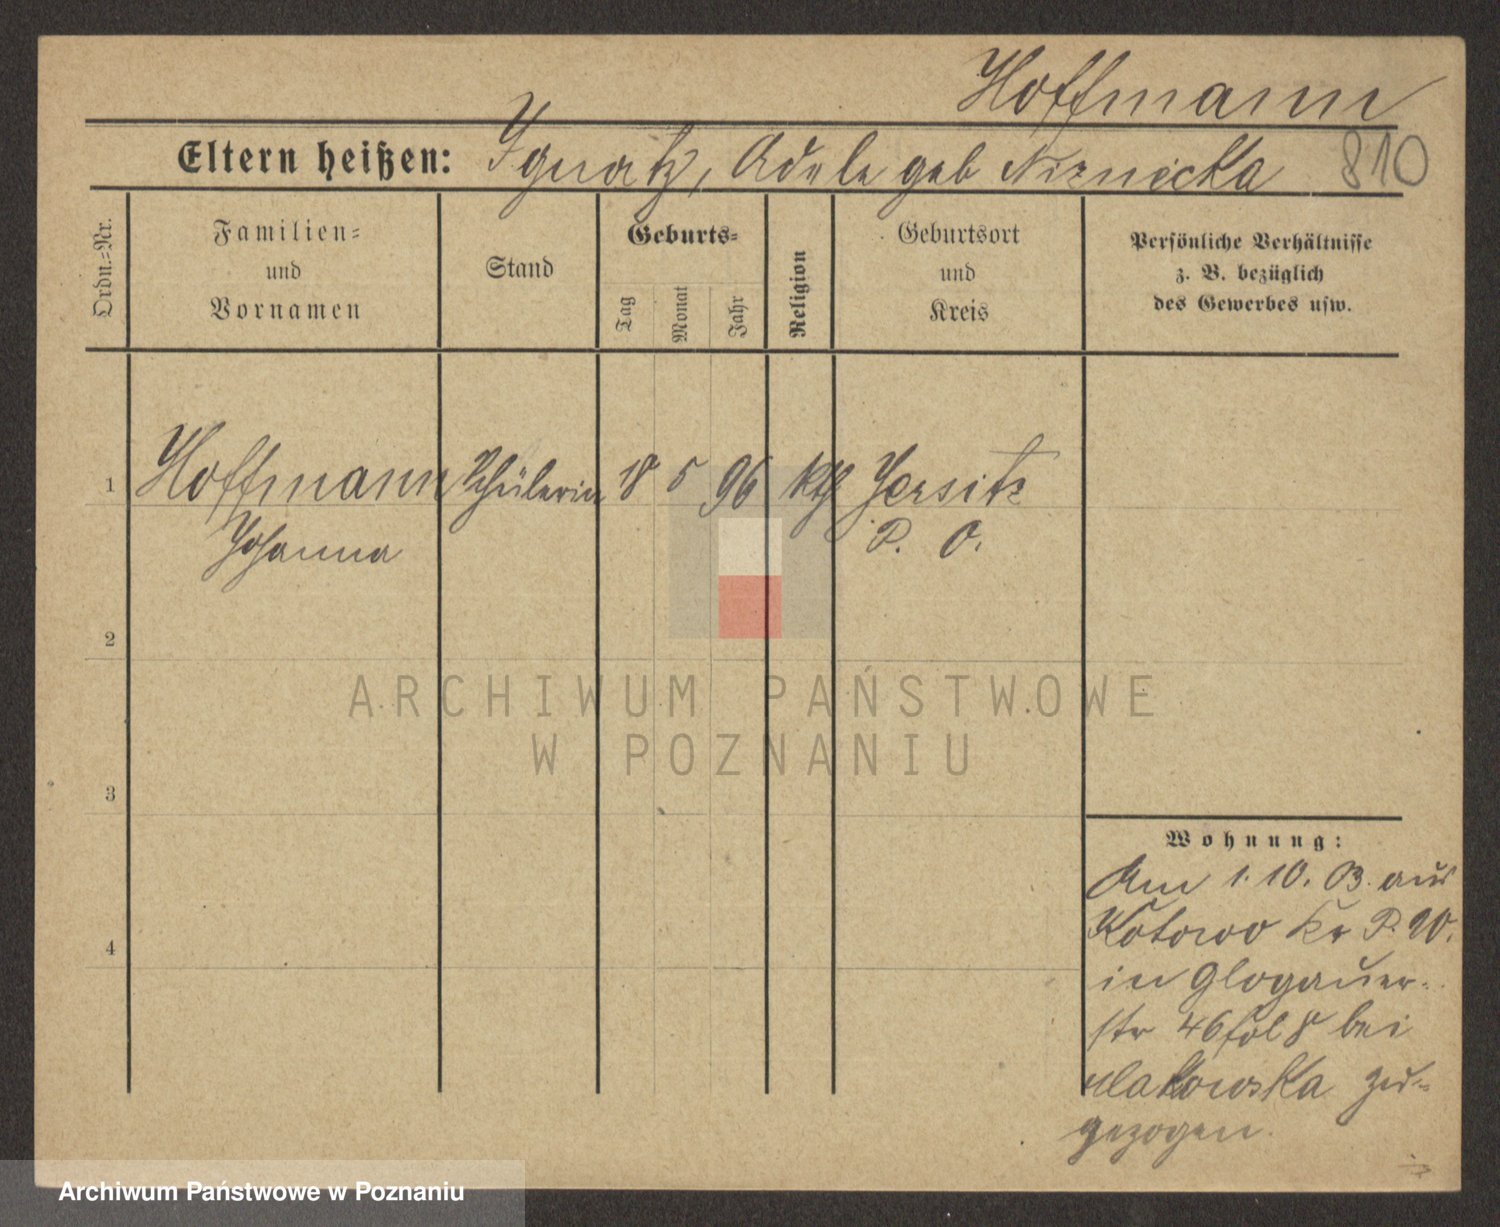 Hoffmann
Eltern heißen: Ignatz, Adele geb
810
Ordn.=Nr.
Familien=
und
Vornamen
Stand
Geburts=
Tag
Monat
Jahr
Religion
Geburtsort
und
Kreis
Persönliche Verhältnisse
z. B. bezüglich
des Gewerbes usw.
1
Hoffmann Schülerin 18 5 96 kth Jersitz
Johanna P. O.
2
3
4
Wohnung:
Am 1. 10. 03. aus
Kotowo Kr P. W.
in Glogauer=
str 46 fol 8 bei
zu=
gezogen.
ARCHIWUM PAŃSTWOWE
W POZNANIU
Archiwum Państwowe w Poznaniu